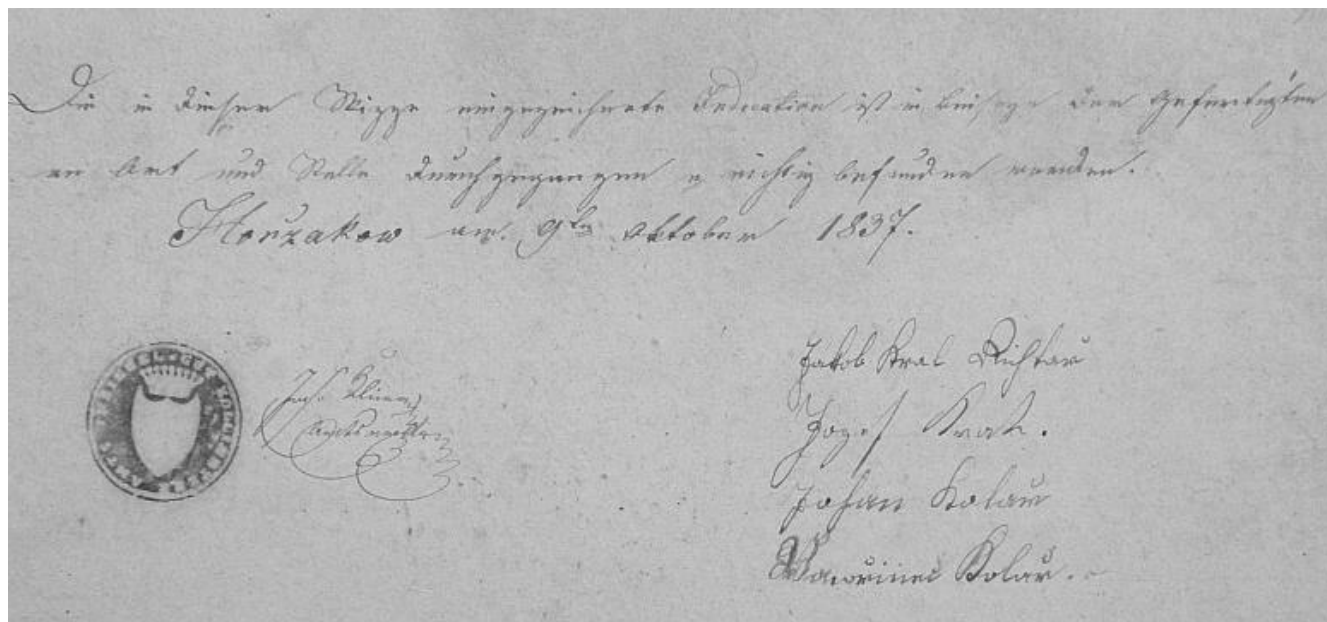 Die in dieser Skizze eingezeichnete Indication ist in beiseyn der Gefertigten
an Ort und Stelle durchgegangen u richtig befunden worden.
Honzakow am 9te Oktober 1837.
Jakob Kral Richtar
Jozef Krah.
Johan Kolar
Waworinec Kolar.